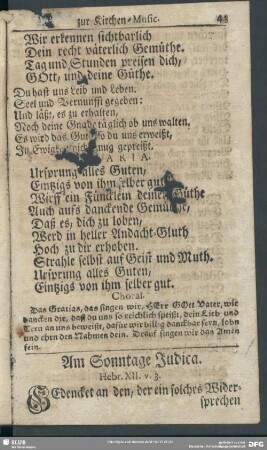 zur Kirchen-Music. 41
Wir erkennen sichtbarlich
Dein recht väterlich Gemüthe.
Tag und Stunden preisen dich,
GOtt, und deine Güthe.
Du hast uns Leib und Leben,
Seel und Vernunfft gegeben:
Und läßt, es zu erhalten,
Noch deine Gnade täglich ob uns walten,
Es wird das Gut so du uns erweißt,
In Ewigkeit nicht gnug gepreißt.
ARIA.
Ursprung alles Guten,
Eintzigs von ihm selber gut
Wirff ein Füncklein deiner Güthe
Auch aufs danckende Gemüthe,
Daß es, dich zu loben,
Werd in heller Andacht-Gluth
Hoch zu dir erhoben.
Strahle selbst auf Geist und Muth.
Ursprung alles Guten,
Eintzigs von ihm selber gut.
Choral.
Das Gratias, das singen wir, HErr GOtt Vater, wir
dancken dir, daß du uns so reichlich speißt, dein Lieb und
Treu an uns beweißt, dafür wir billig danckbar seyn, lobn
und ehrn den Nahmen dein. Drauf singen wir das Amen
fein.
Am Sonntage Judica.
Hebr. XII. v. 3.
GEdencket an den, der ein solches Wider-
sprechen
SLUB